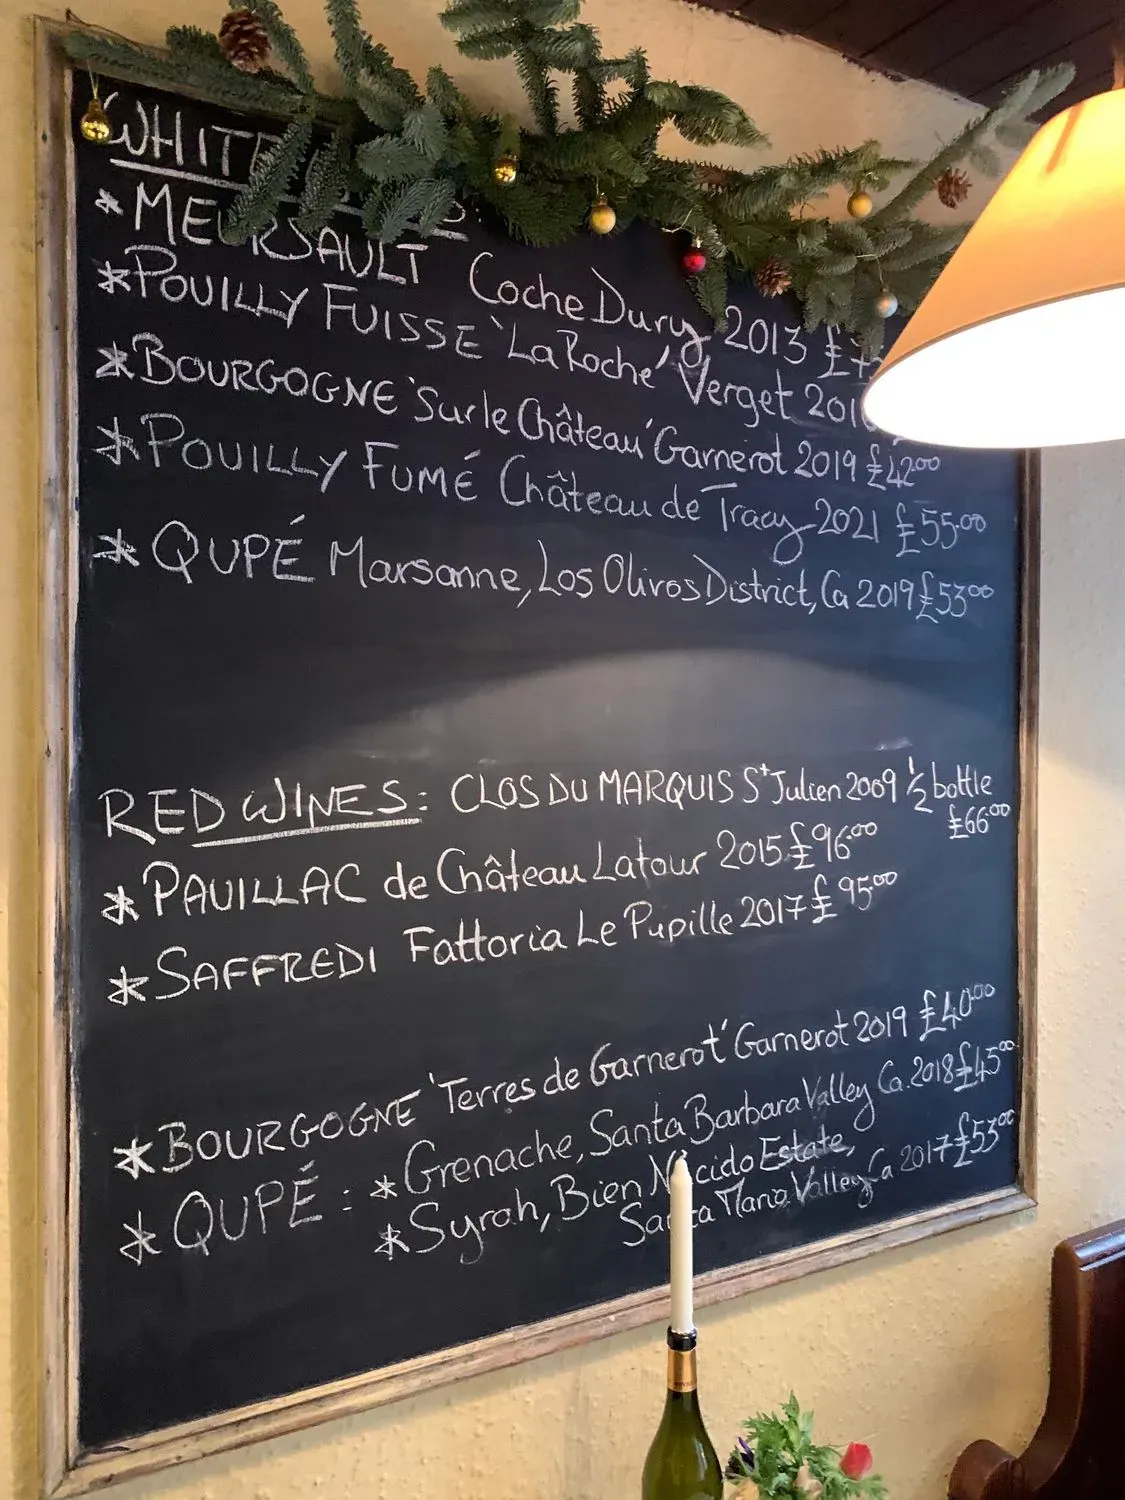 WHITE
*MEURSAULT Coche Dury 2013
*POUILLY FUISSE 'La Roche' Verget
*BOURGOGNE 'Sur le Château' Garnerot 2019 £42.00
*POUILLY FUMÉ Château de Tracy 2021 £55.00
*QUPÉ Marsanne, Los Olivos District, Ca 2019 £53.00
RED WINES: CLOS DU MARQUIS St Julien 2009 ½ bottle
£66.00
*PAUILLAC de Château Latour 2015 £96.00
*SAFFREDI Fattoria Le Pupille 2017 £95.00
*BOURGOGNE 'Terres de Garnerot' Garnerot 2019 £40.00
*QUPÉ: *Grenache, Santa Barbara Valley Ca. 2018 £45.00
*Syrah, Bien Nacido Estate,
Santa Maria Valley, Ca 2017 £53.00